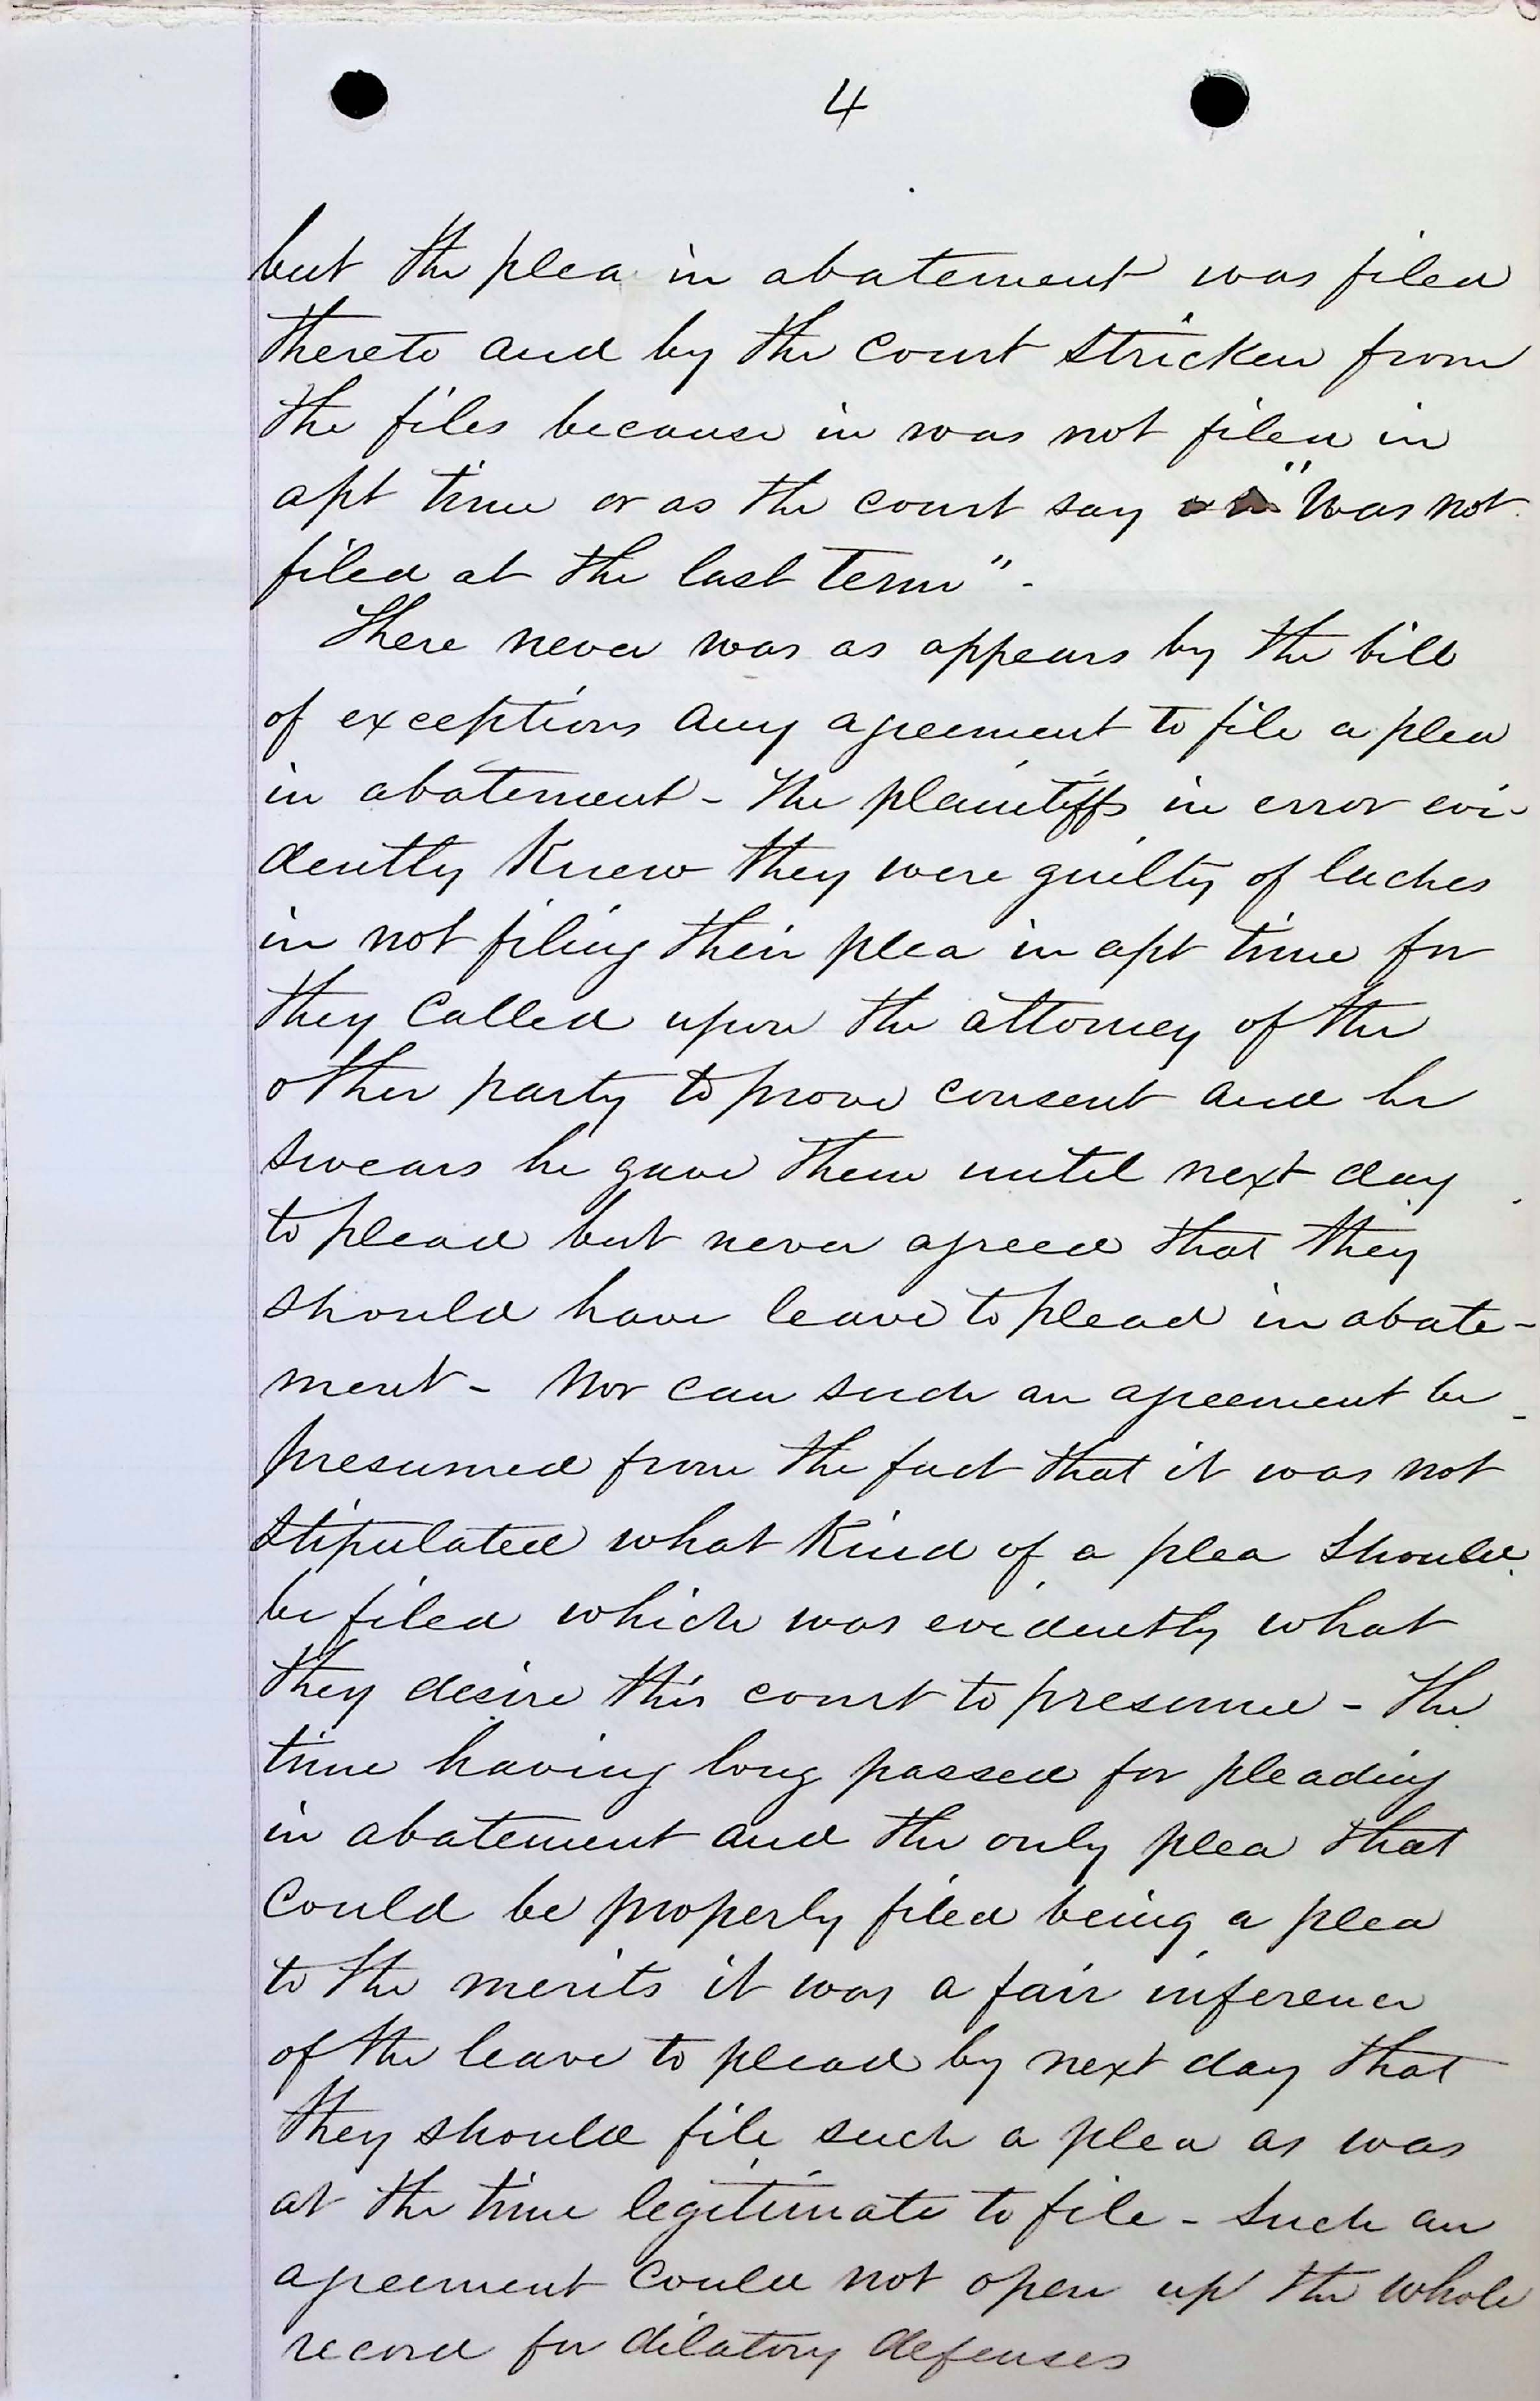 4
but the plea in abatement was filed
thereto and by the court stricken from
the files because in was not filed in
apt time or as the court say "was not
filed at the last term" -
There never was as appears by the bill
of exceptions any agreement to file a plea
in abatement - The plaintiffs in error evi-
dently knew they were guilty of laches
in not filing their plea in apt time for
they called upon the attorney of the
other party to prove consent and he
swears he gave them until next day
to plead but never agreed that they
should have leave to plead in abate-
ment - Nor can such an agreement be
presumed from the fact that it was not
stipulated what kind of a plea should
be filed which was evidently what
they desire this court to presume - The
time having long passed for pleading
in abatement and the only plea that
could be properly filed being a plea
to the merits it was a fair inference
of the leave to plead by next day that
they should file such a plea as was
at the time legitimate to file - Such an
agreement could not open up the whole
record for dilatory defenses